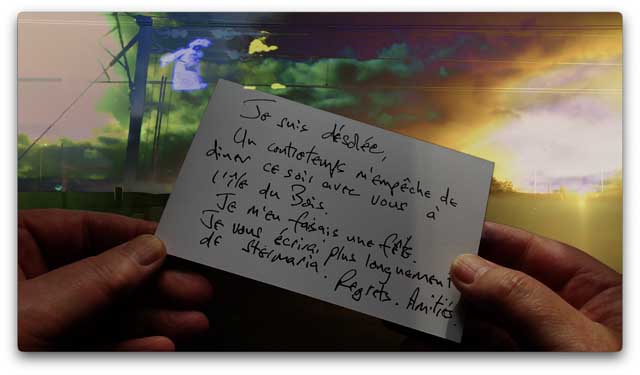 Je suis désolée,
Un contretemps m'empêche de
dîner ce soir avec vous à
l'île du Bois.
Je m'en faisais une fête.
Je vous écrirai plus longuement
de Stermaria. Regrets. Amitiés.